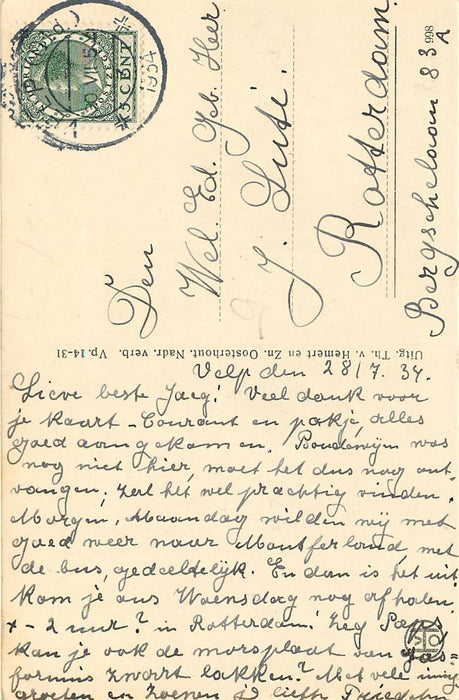 NEDERLAND
5 CENT
VELP (GLD)
VII
1934
Den
Wel. Ed. Geb. Heer
J. Luti.
Rotterdam.
Bergschelaan 83 A
998
Uitg. Th. v. Hemert en Zn. Oosterhout. Nadr. verb. Vp. 14-31
Velp den 28/7. 34.
Lieve beste Jaeg! Veel dank voor
je kaart - Courant en pakje, alles
goed aangekomen. Boudewijn was
nog niet hier, moet het dus nog ont-
vangen. Zal het wel prachtig vinden.
Morgen, Maandag wilden wij met
goed weer naar Montferland met
de bus, gedeeltelijk. En dan is het uit
kom je ons Woensdag nog afhalen
+- 2 uur? in Rotterdam! Zeg Paps
kan je ook de morsplaat van gas-
fornuis zwart lakken? Met vele innig
groeten en zoenen je liefh.